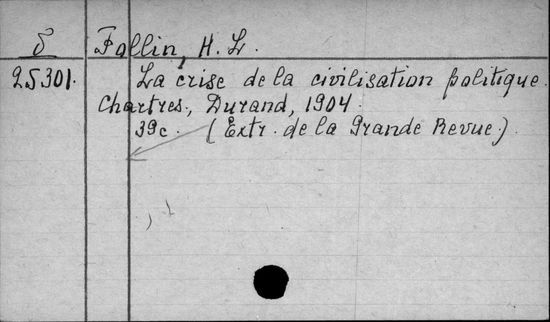 8 Follin, H. L.
25301. La crise de la civilisation politique.
Chartres., Durand, 1904.
39c. (Extr. de la Grande Revue.)